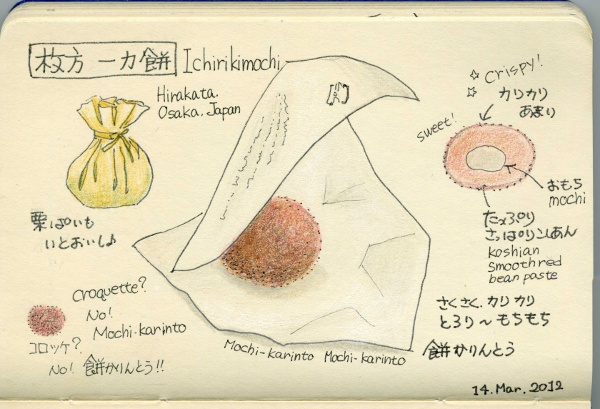 枚方 一力餅 Ichirikimochi
Hirakata.
Osaka. Japan
栗ぱいも
いとおいし♪
croquette?
No!
Mochi-karinto
コロッケ?
No! 餅かりんとう!!
Mochi-karinto Mochi-karinto
☆ Crispy!
☆ カリカリ
あまり
sweet!
おもち
mochi
たっぷり
さっぱりこしあん
Koshian
smooth red
bean paste
さくさく.カリカリ
とろり〜もちもち
餅かりんとう
14.Mar.2012